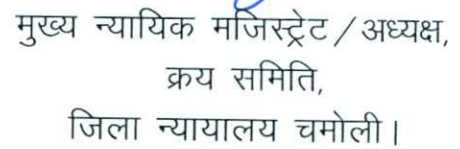 मुख्य न्यायिक मजिस्ट्रेट / अध्यक्ष,
क्रय समिति,
जिला न्यायालय चमोली।